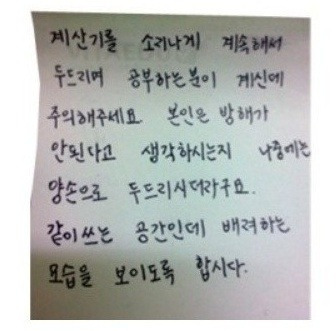 계산기를 소리나게 계속해서
두드리며 공부하는분이 계신데
주의해주세요 본인은 방해가
안된다고 생각하시는지 나중에는
양손으로 두드리시더라구요.
같이쓰는 공간인데 배려하는
모습을 보이도록 합시다.